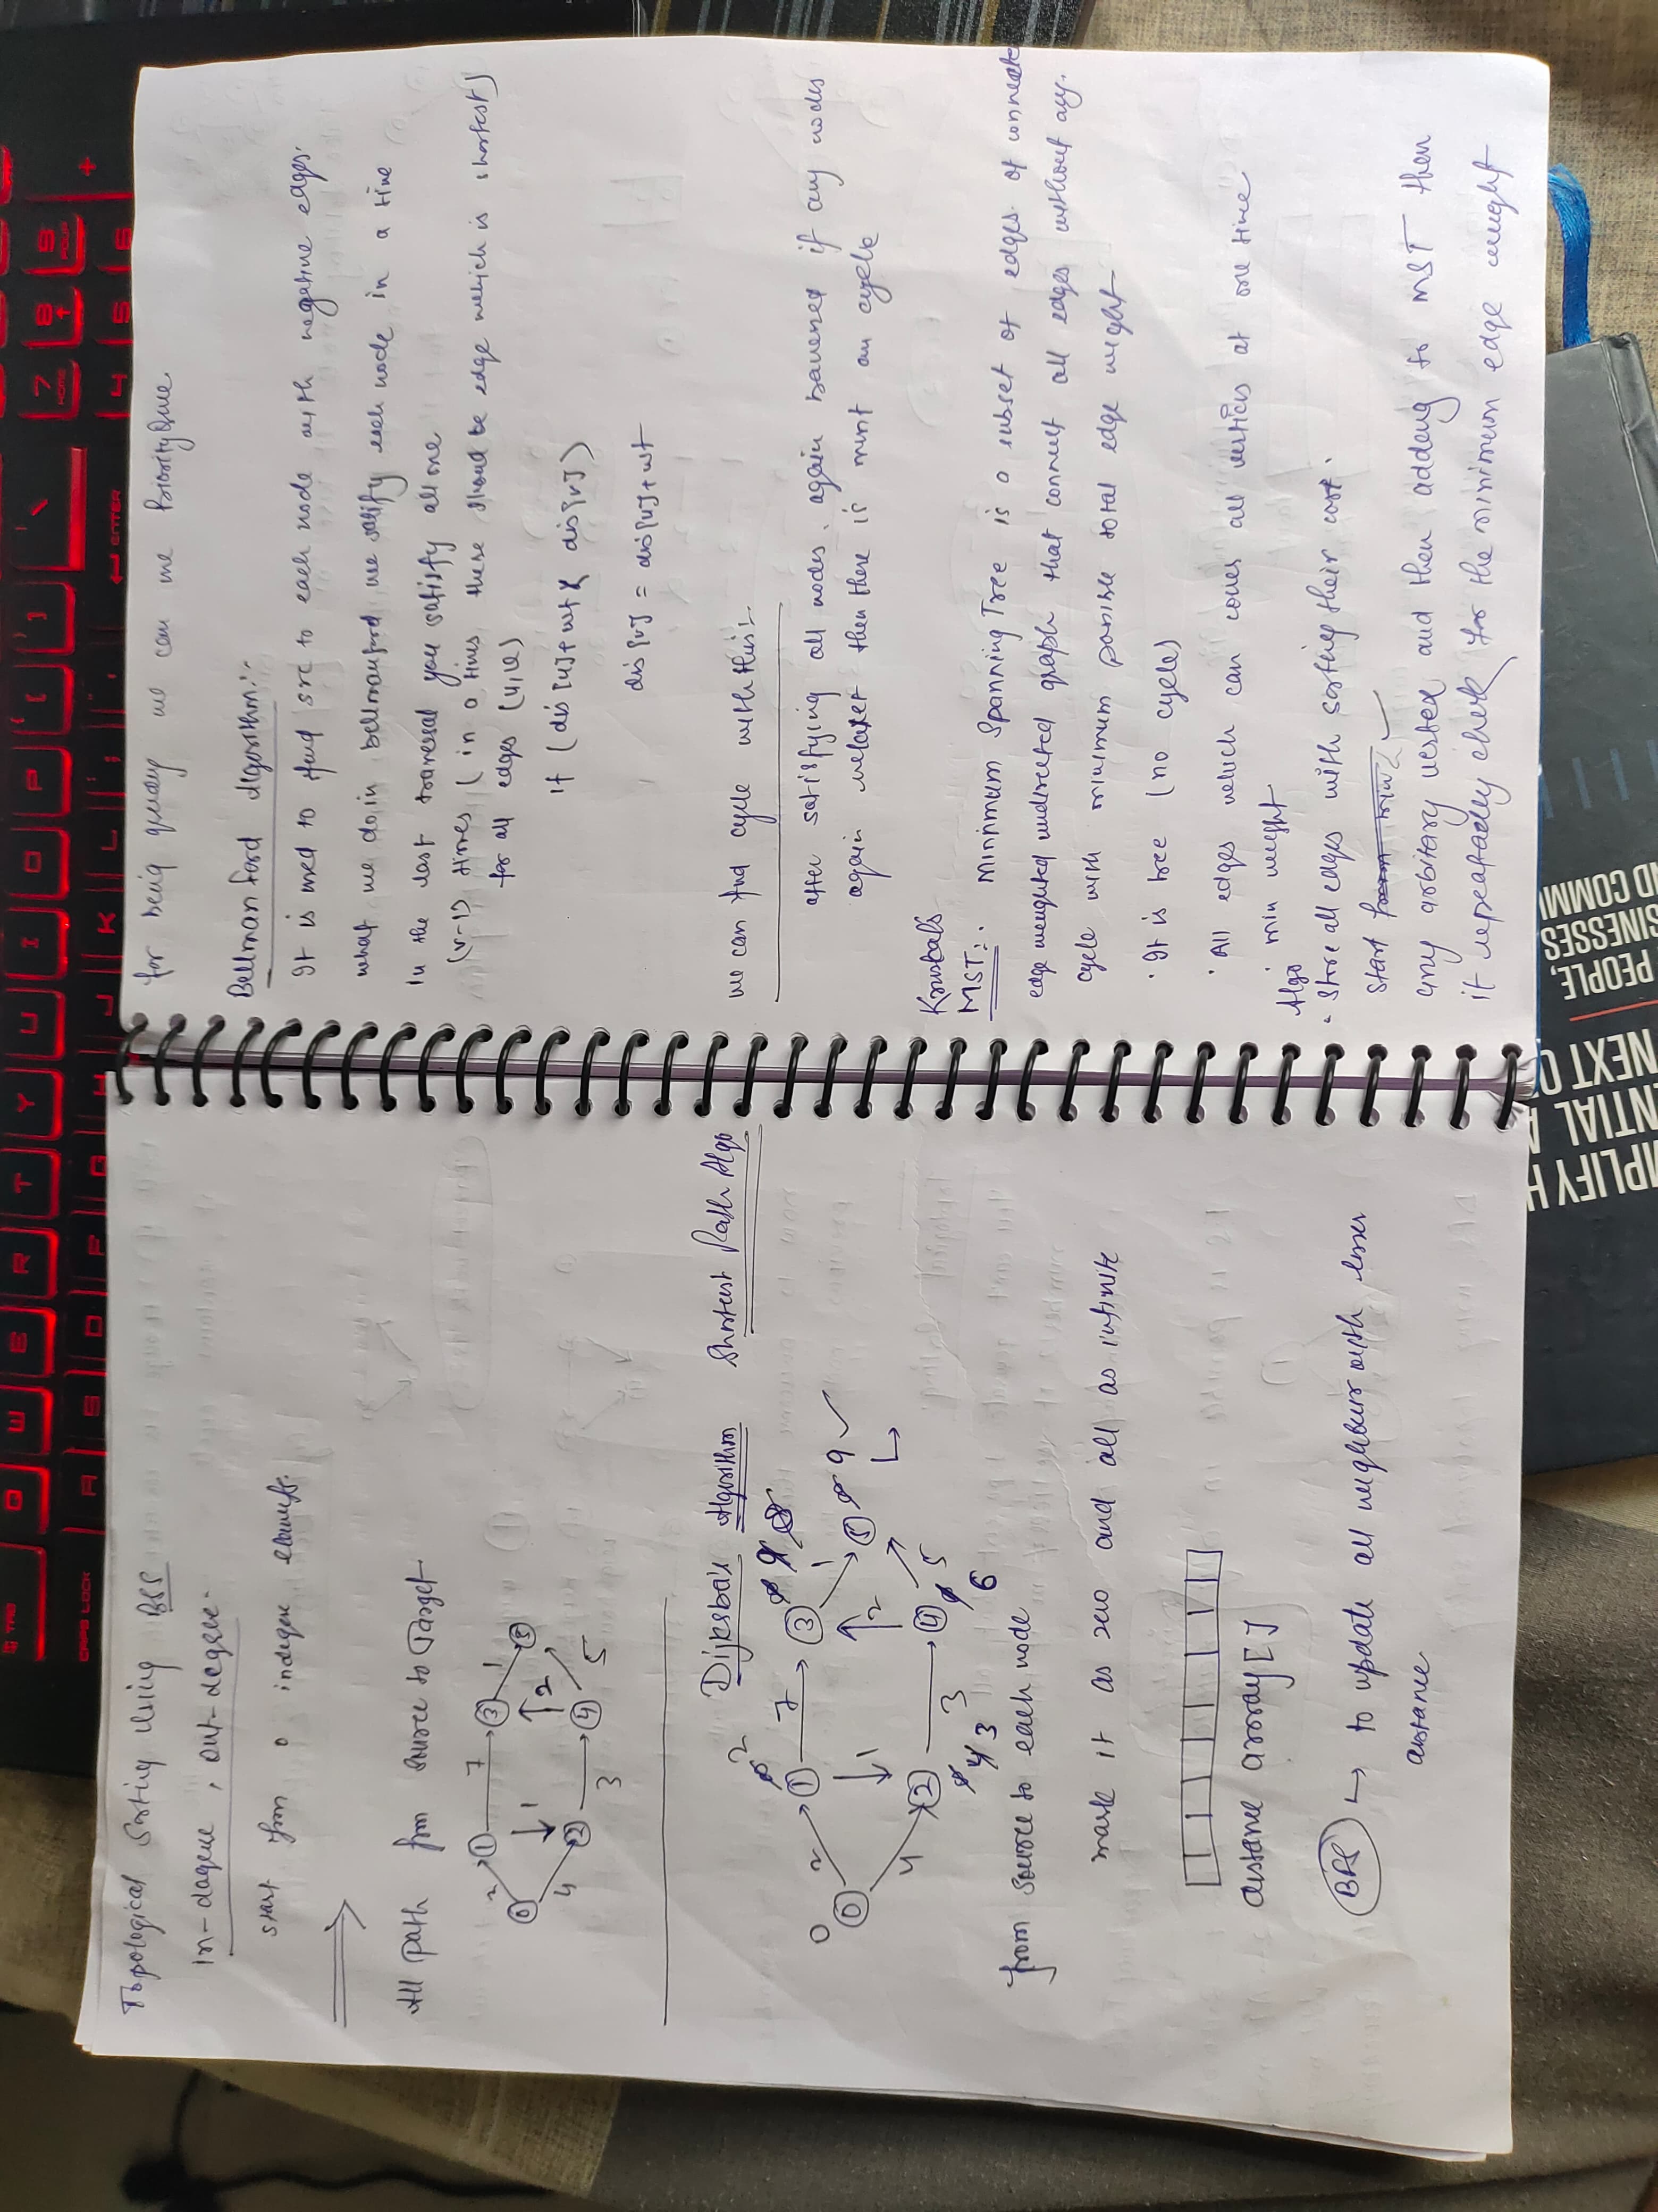 Topological Sorting Using BFS
In-dagree, out-degree.
start from 0 indegree elements.
All Path from source to Target
2 1 7 3 1
0 1 2 5
4 2 3 4 5
Dijksba's Algorithm Shortest Path Algo
∞ 2
0 2 1 7 3 ∞ 9 8
0 1 2 1 5 ∞ 9 ✓
4 2 3 4 ∞ 5
∞ 4 3 6
from source to each node
mark it as zero and all as infinite
distance array[]
BFS ↳ to update all neighbour with lesser
distance
for being greedy we can use PriorityQueue
Bellman Ford Algorithm:-
It is used to find src to each node with negative edges.
what we do in bellmanford we satify each node in a time
In the last traversal you satisfy all one
(v-1) times ( in a times there should be edge which is shortest)
for all edges (u,v)
if (dis[u]+wt < dis[v])
dis[v] = dis[u]+wt
we can find cycle with this:-
after satisfying all nodes. again traversed if any nodes
again relaxet then there is must an cycle
Kruskal's
MST:. Minimum Spanning Tree is a subset of edges of connecte
edge weighted undirected graph that connect all edges without any.
cycle with minimum possible total edge weight
· It is tree (no cycle)
· All edges which can cover all vertices at one time
· min weight
Algo
· Store all edges with sorting their cost.
start ✓
any arbitary vertex and then addeng to MST then
it repeatadley chek for the minimum edge weight
TAB Q W E R T Y U I O P [ ] \ 7 8 9
HOME PGUP
CAPS LOCK A S D F G H J K L ; ' ENTER 4 5 6 +
MPLIFY H
ENTIAL A
NEXT O
PEOPLE,
SINESSES
ND COMMU